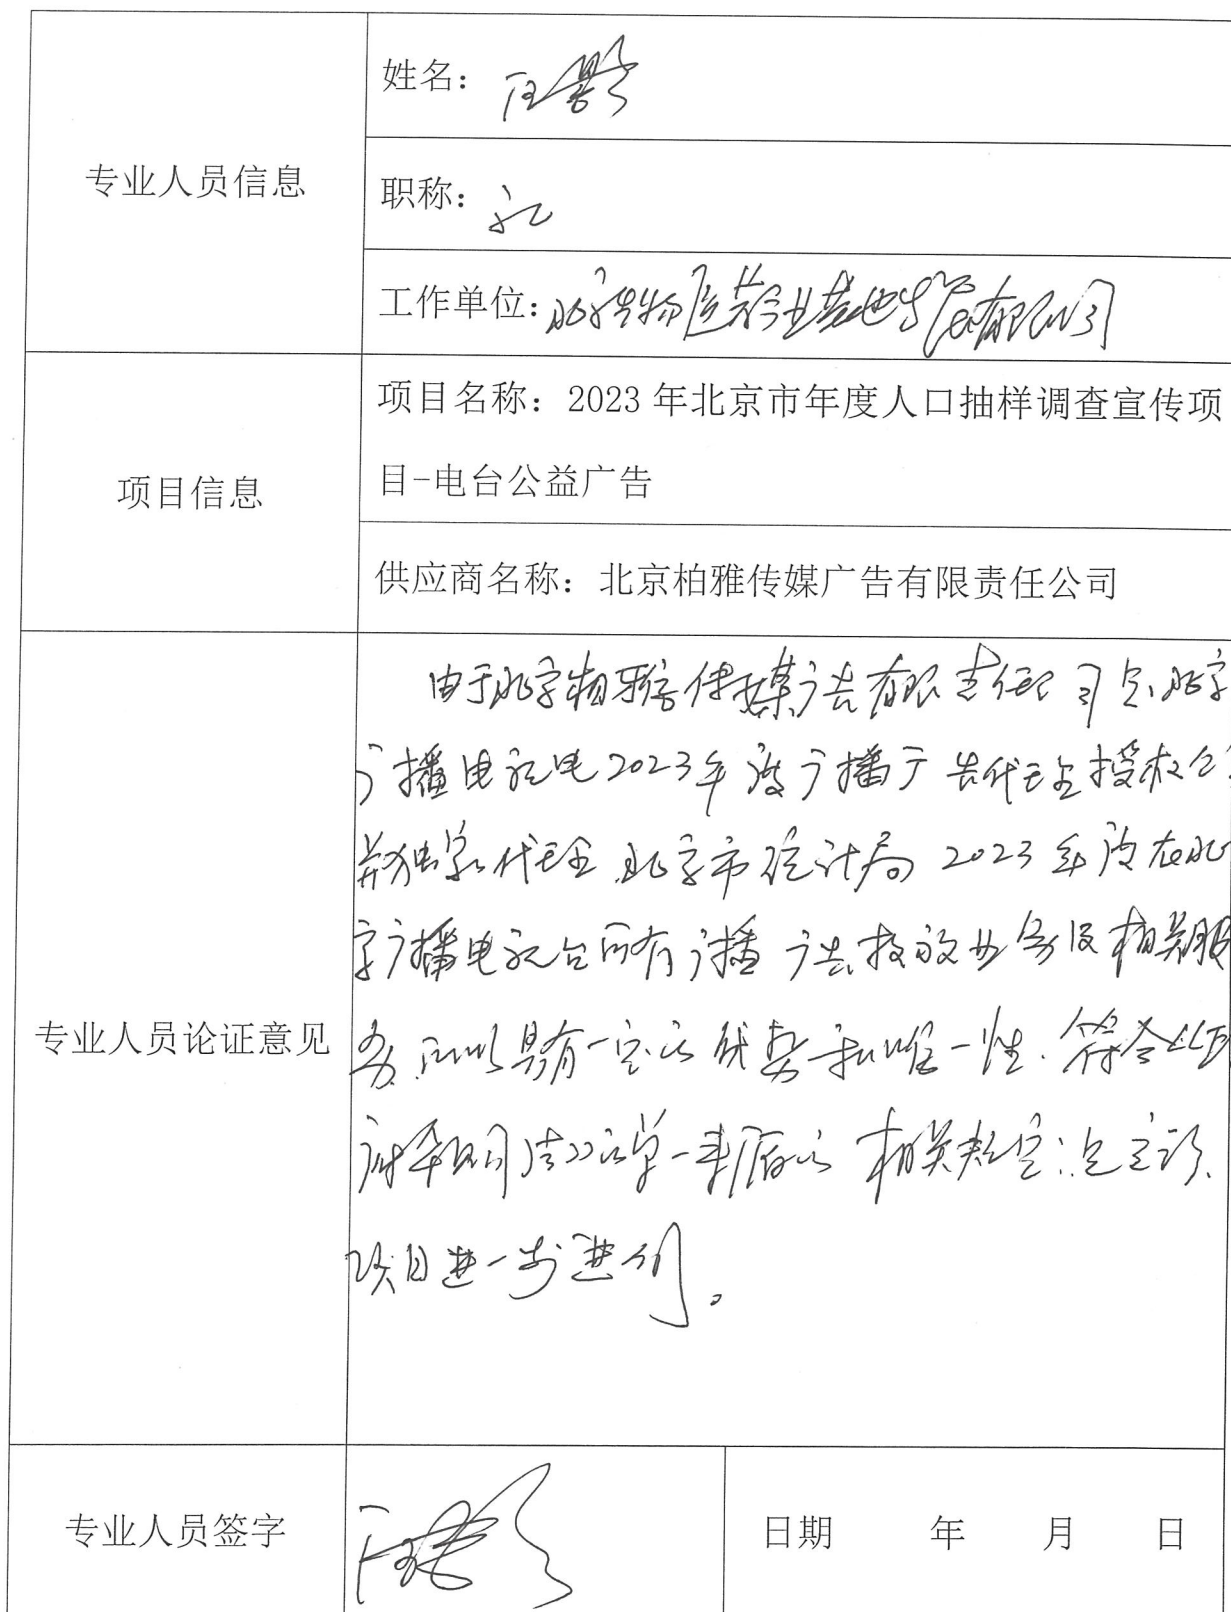 专业人员信息
姓名：
职称：
工作单位：北京生物医药产业基地发展有限公司
项目信息
项目名称：2023年北京市年度人口抽样调查宣传项
目-电台公益广告
供应商名称：北京柏雅传媒广告有限责任公司
专业人员论证意见
由于北京柏雅传媒广告有限责任公司是北京
广播电视电2023年度广播广告代理授权公
并独家代理北京市统计局2023年度在北
京广播电视台所有广播广告投放业务及相关服
务，所以具有一定的优势和唯一性.符合
府采购法》的单一来源的相关规定；
项目进一步进行。
专业人员签字
日期 年 月 日